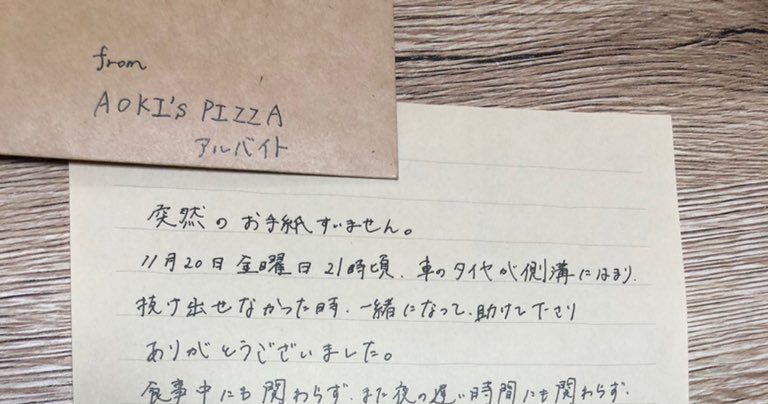 from
AOKI's PIZZA
アルバイト
突然のお手紙すいません。
11月20日金曜日21時頃、車のタイヤが側溝にはまり、
抜け出せなかった時、一緒になって、助けて下さり
ありがとうございました。
食事中にも関わらず、また夜の遅い時間にも関わらず、